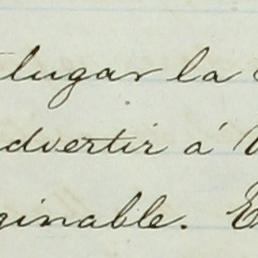 lugar la
advertir á
ginable. E